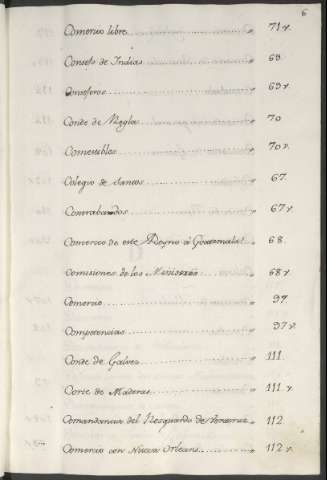 6
Comercio libre........................" 71v.
Consejo de Indias...................." 69
Consejeros............................" 69v.
Conde de Regla......................." 70
Comestibles..........................." 70v.
Colegio de Santos...................." 67.
Contrabandos........................." 67v.
Comercio de este Reyno á Goatemala." 68.
Comisiones de los Ministros.........." 68v.
Comercio............................." 97.
Competencias........................." 97v.
Conde de Galvez......................" 111.
Corte de Maderas....................." 111v.
Comandancia del Resguardo de Veracruz" 112
Comercio con Nueva Orleans..........." 112v.